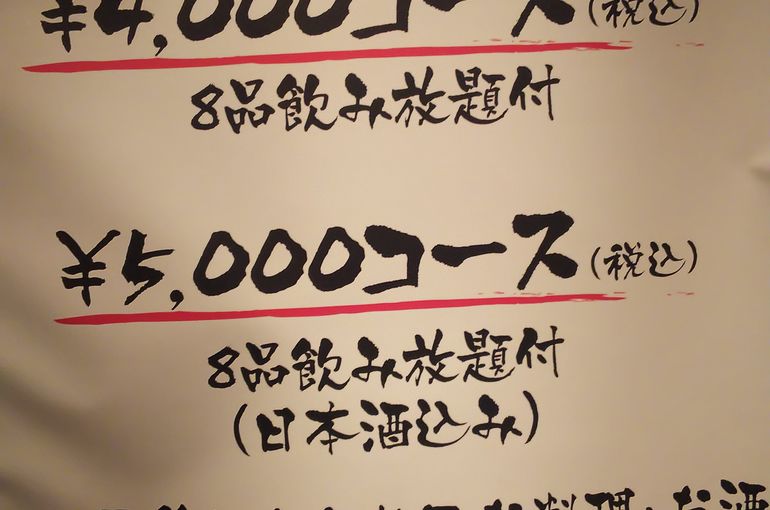 ¥4,000コース(税込)
8品飲み放題付
¥5,000コース(税込)
8品飲み放題付
(日本酒込み)
お料理・お酒